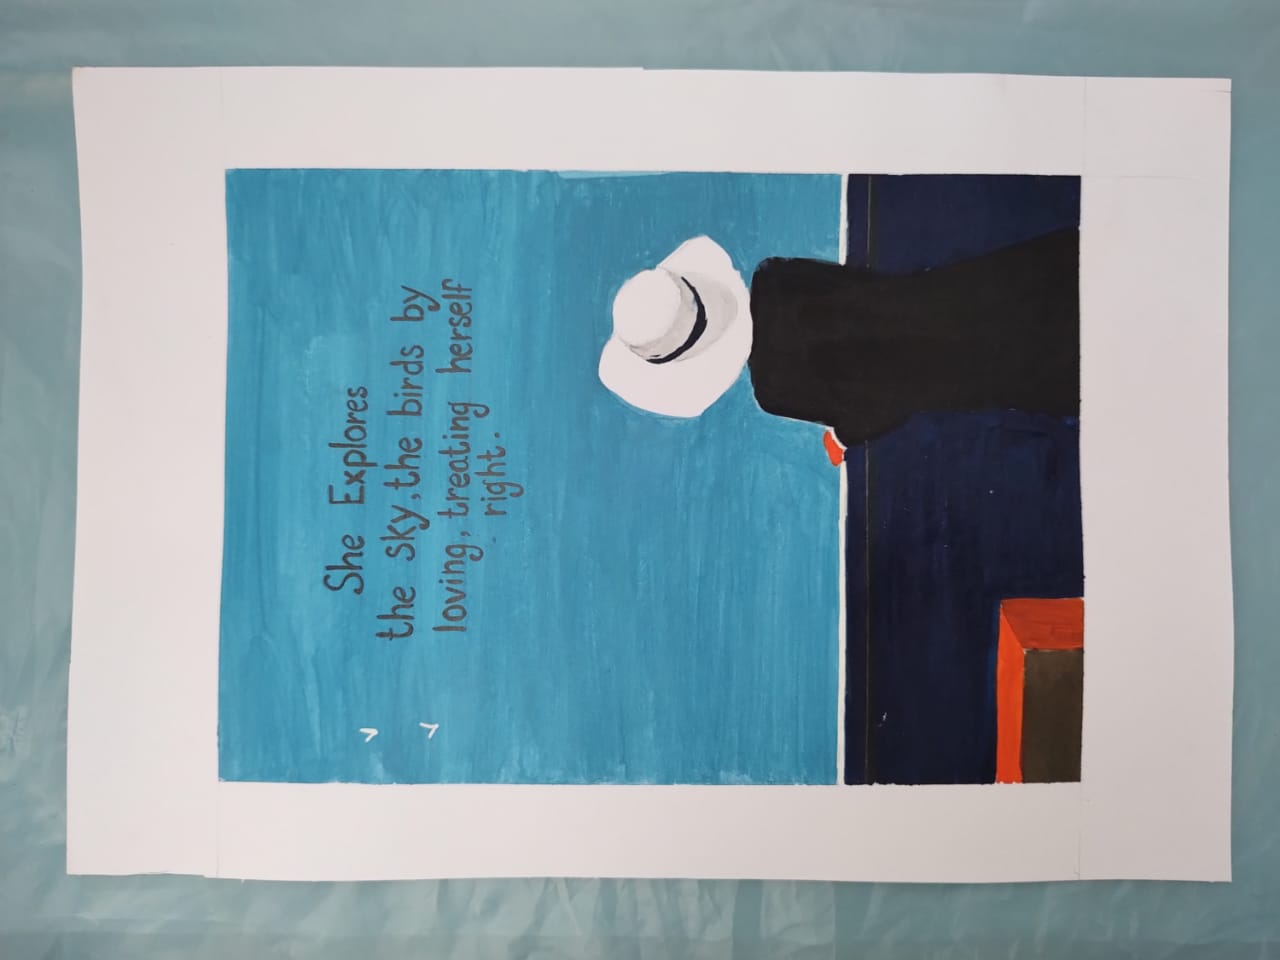 She Explores
the sky, the birds by
loving, treating herself
. right.